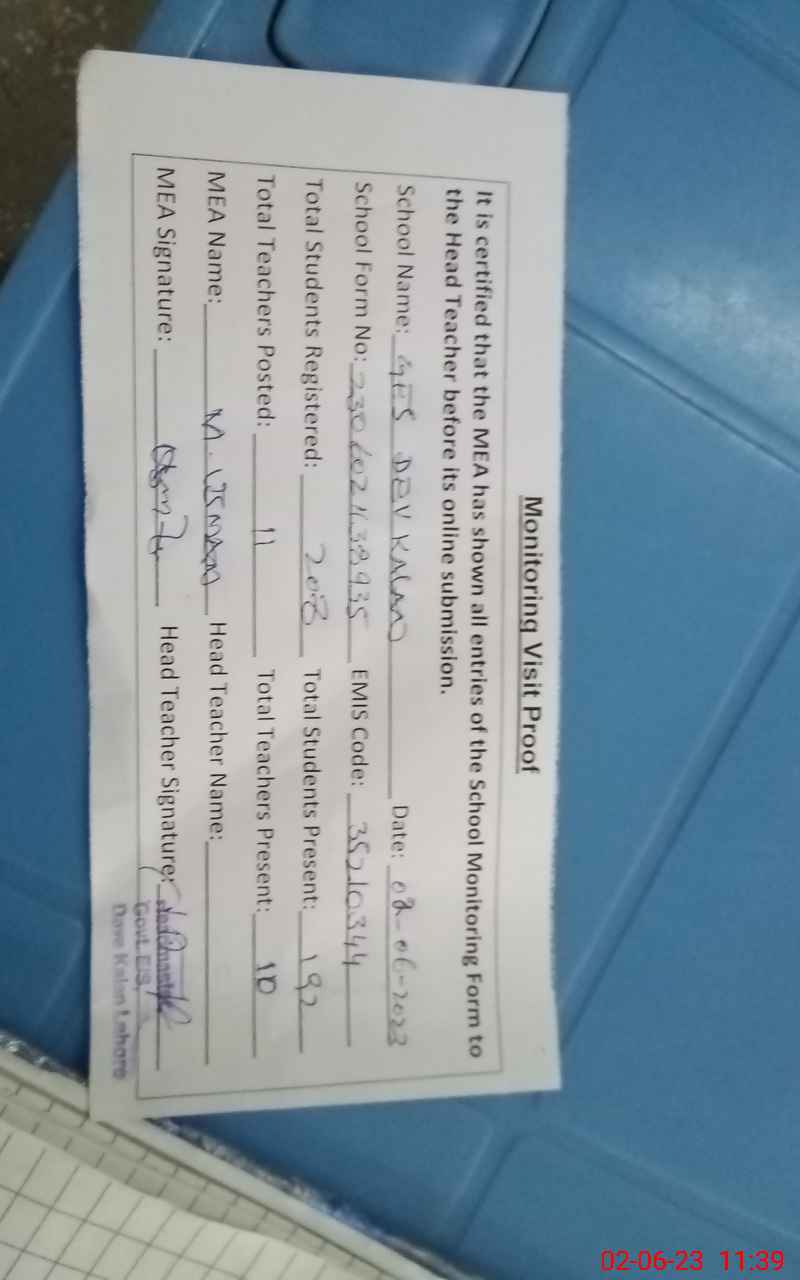 Monitoring Visit Proof
It is certified that the MEA has shown all entries of the School Monitoring Form to
the Head Teacher before its online submission.
School Name: GES DEV KALAN Date: 02-06-2023
School Form No: EMIS Code: 35210344
Total Students Registered: 208 Total Students Present: 192
Total Teachers Posted: 11 Total Teachers Present: 10
MEA Name: M. USMAN Head Teacher Name:
MEA Signature: Head Teacher Signature:
Govt. E/S,
Dave Kalan Lahore
02-06-23 11:39